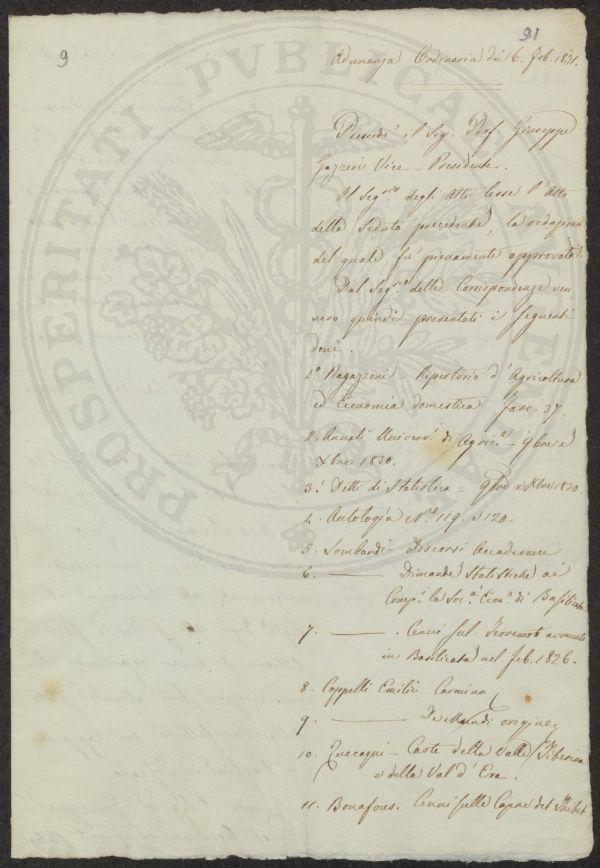 9
91
Adunanza Ordinaria dei 6. Feb. 1831.
Presiedè il Sig. Prof. Giuseppe
Gazzeri Vice-Presidente.
Il Segrio degli Atti lesse l'Atto
della Seduta precedente, la redazione
del quale fù pienamente approvata.
Dal Segrio delle Corrispondenze ven
nero quindi presentati i seguenti
doni.
1° Ragazzoni Repertorio d'Agricoltura
ed Economia domestica Fasc. 37.
2. Annali Univer.i di Agric.a 9bre e
Xbre 1830.
3. Detti di Statistica = 9bre e Xbre 1830.
4. Antologia N.o 119. e 120.
5. Lombardi Discorsi Accademici
6. ——— Dimande Statistiche ai
Comp.i la Soc.a Econ.a di Basilicata
7. ——— Cenni sul Tremoto avvenuto
in Basilicata nel feb. 1826.
8. Cappelli Emilii Carmina
9. ——— De Mundi origine
10. Zuccagni - Carte della Valle Tiberina
e della Val d'Era.
11. Bonafous. Cenni sulle Capre del Thibet
PROSPERITATI PUBLICAE AUGENDAE